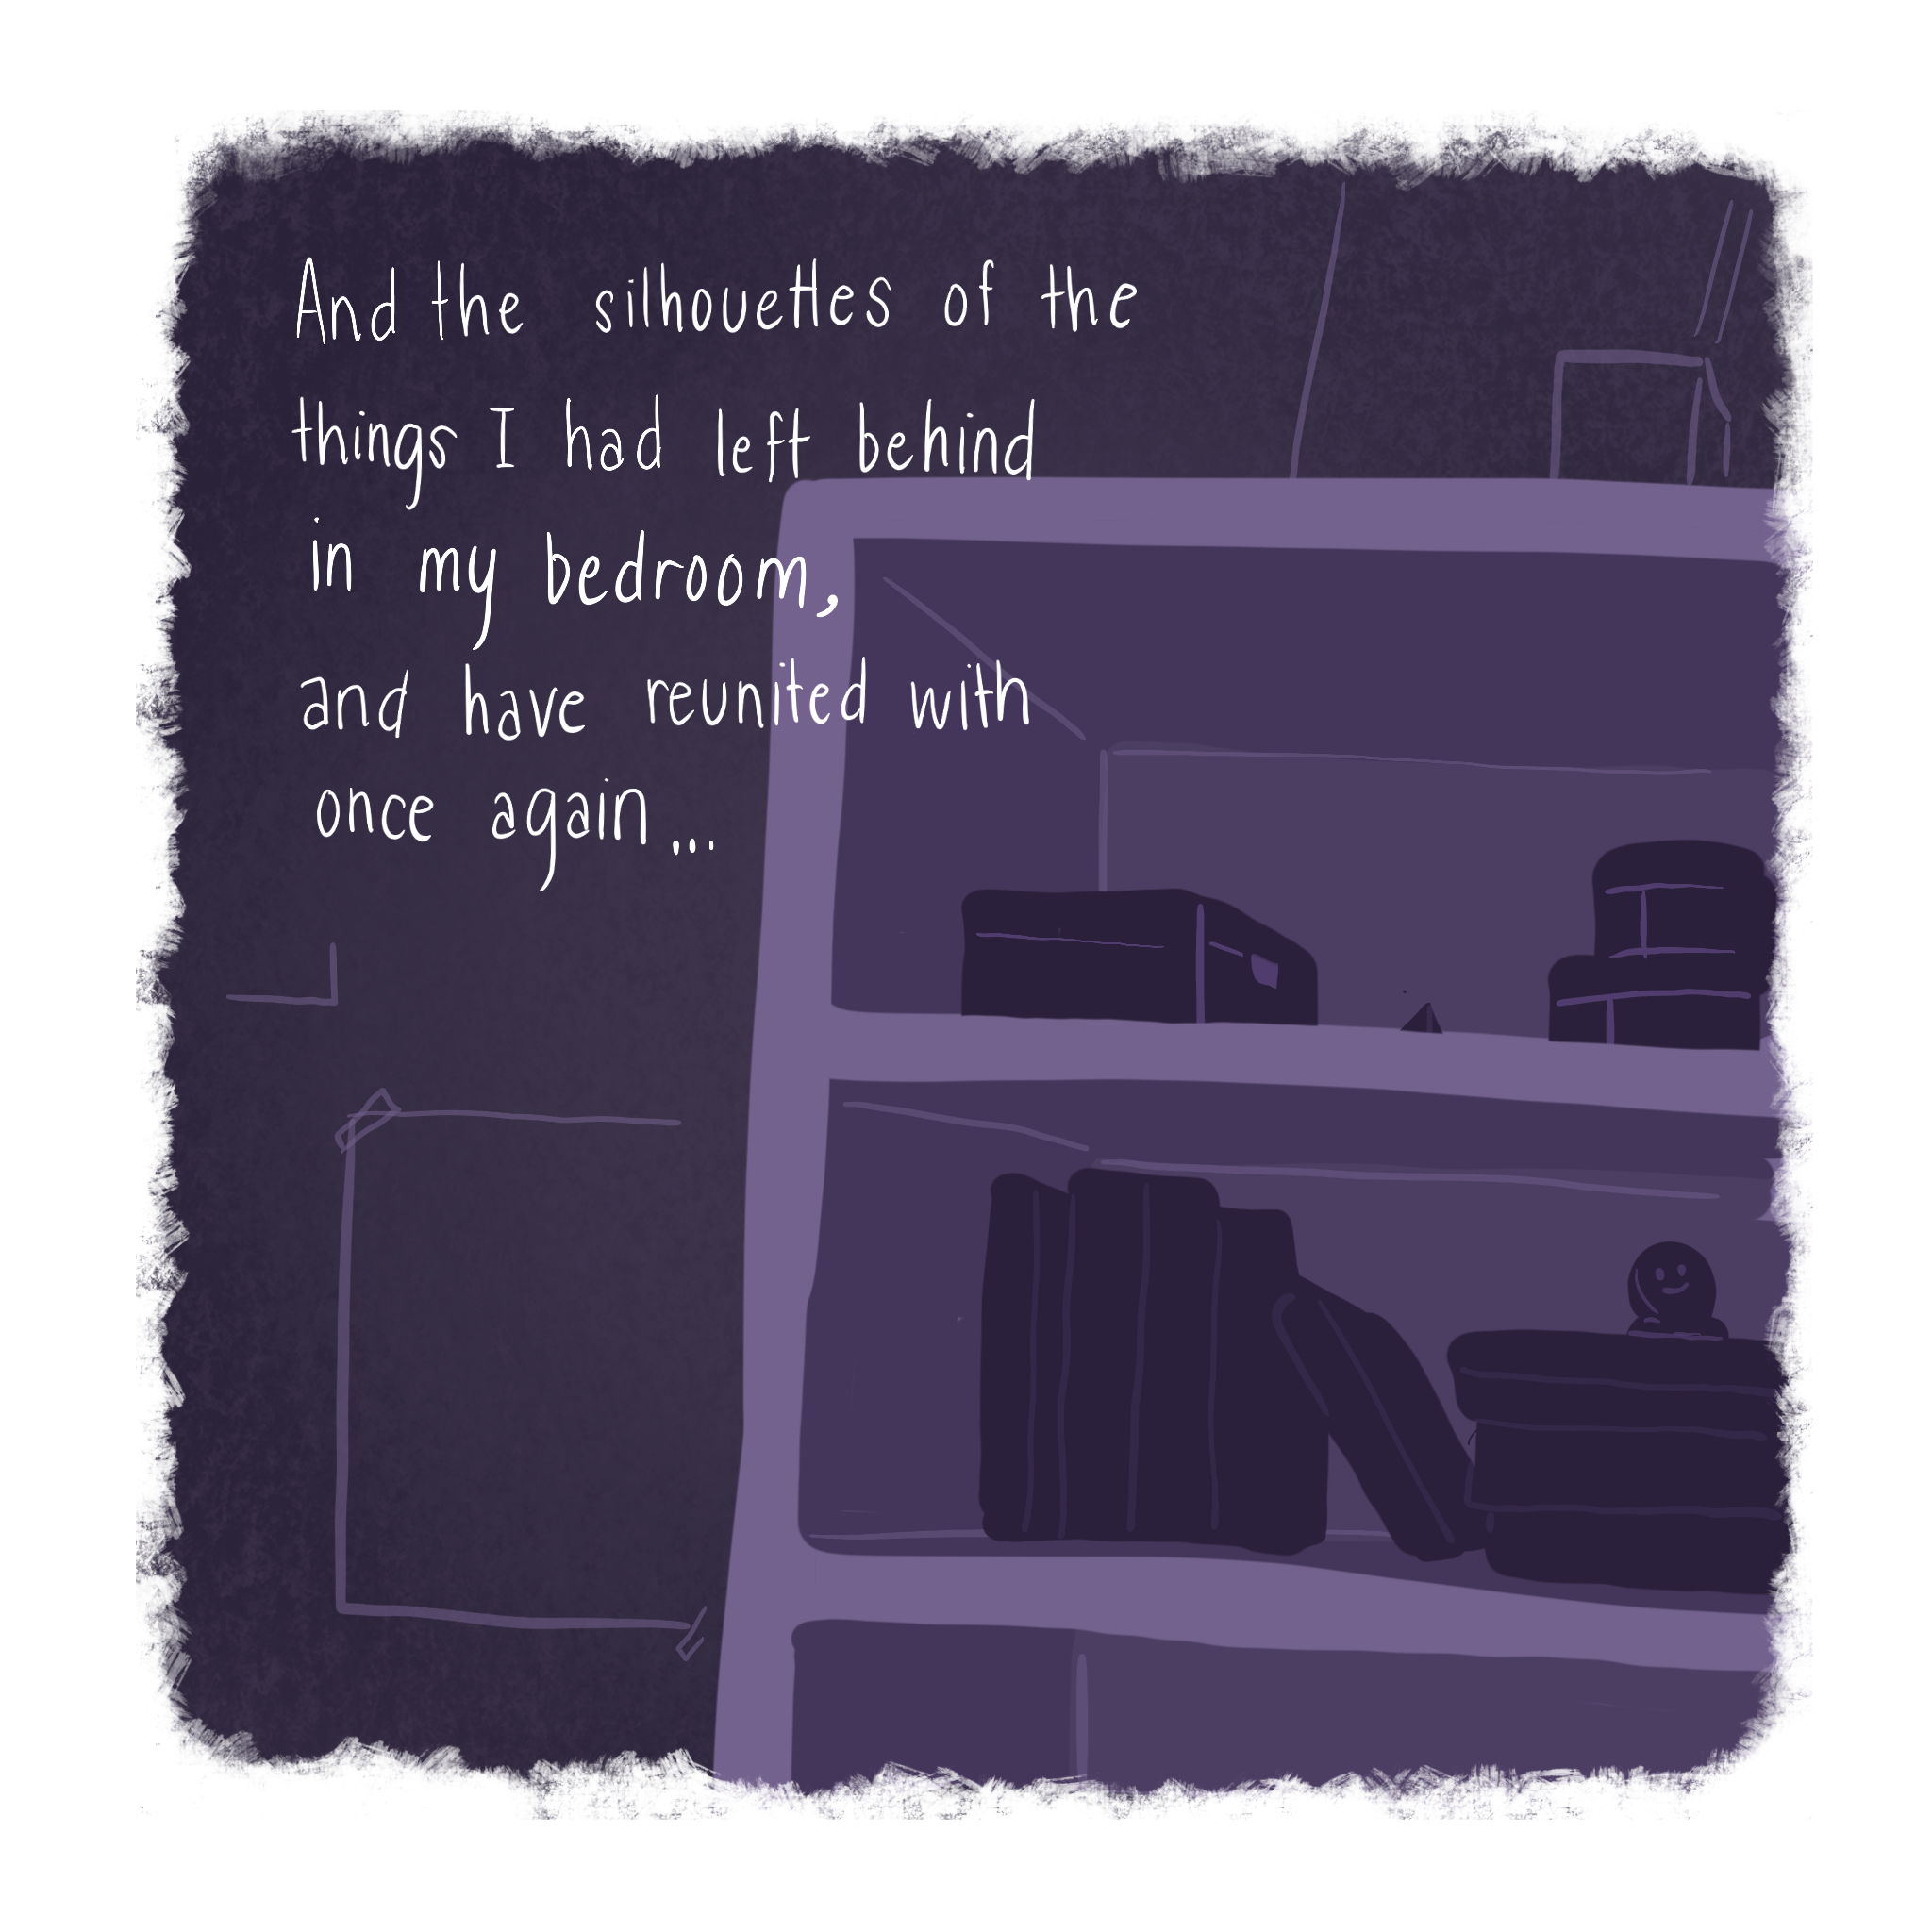 And the silhouettes of the
things I had left behind
in my bedroom,
and have reunited with
once again...